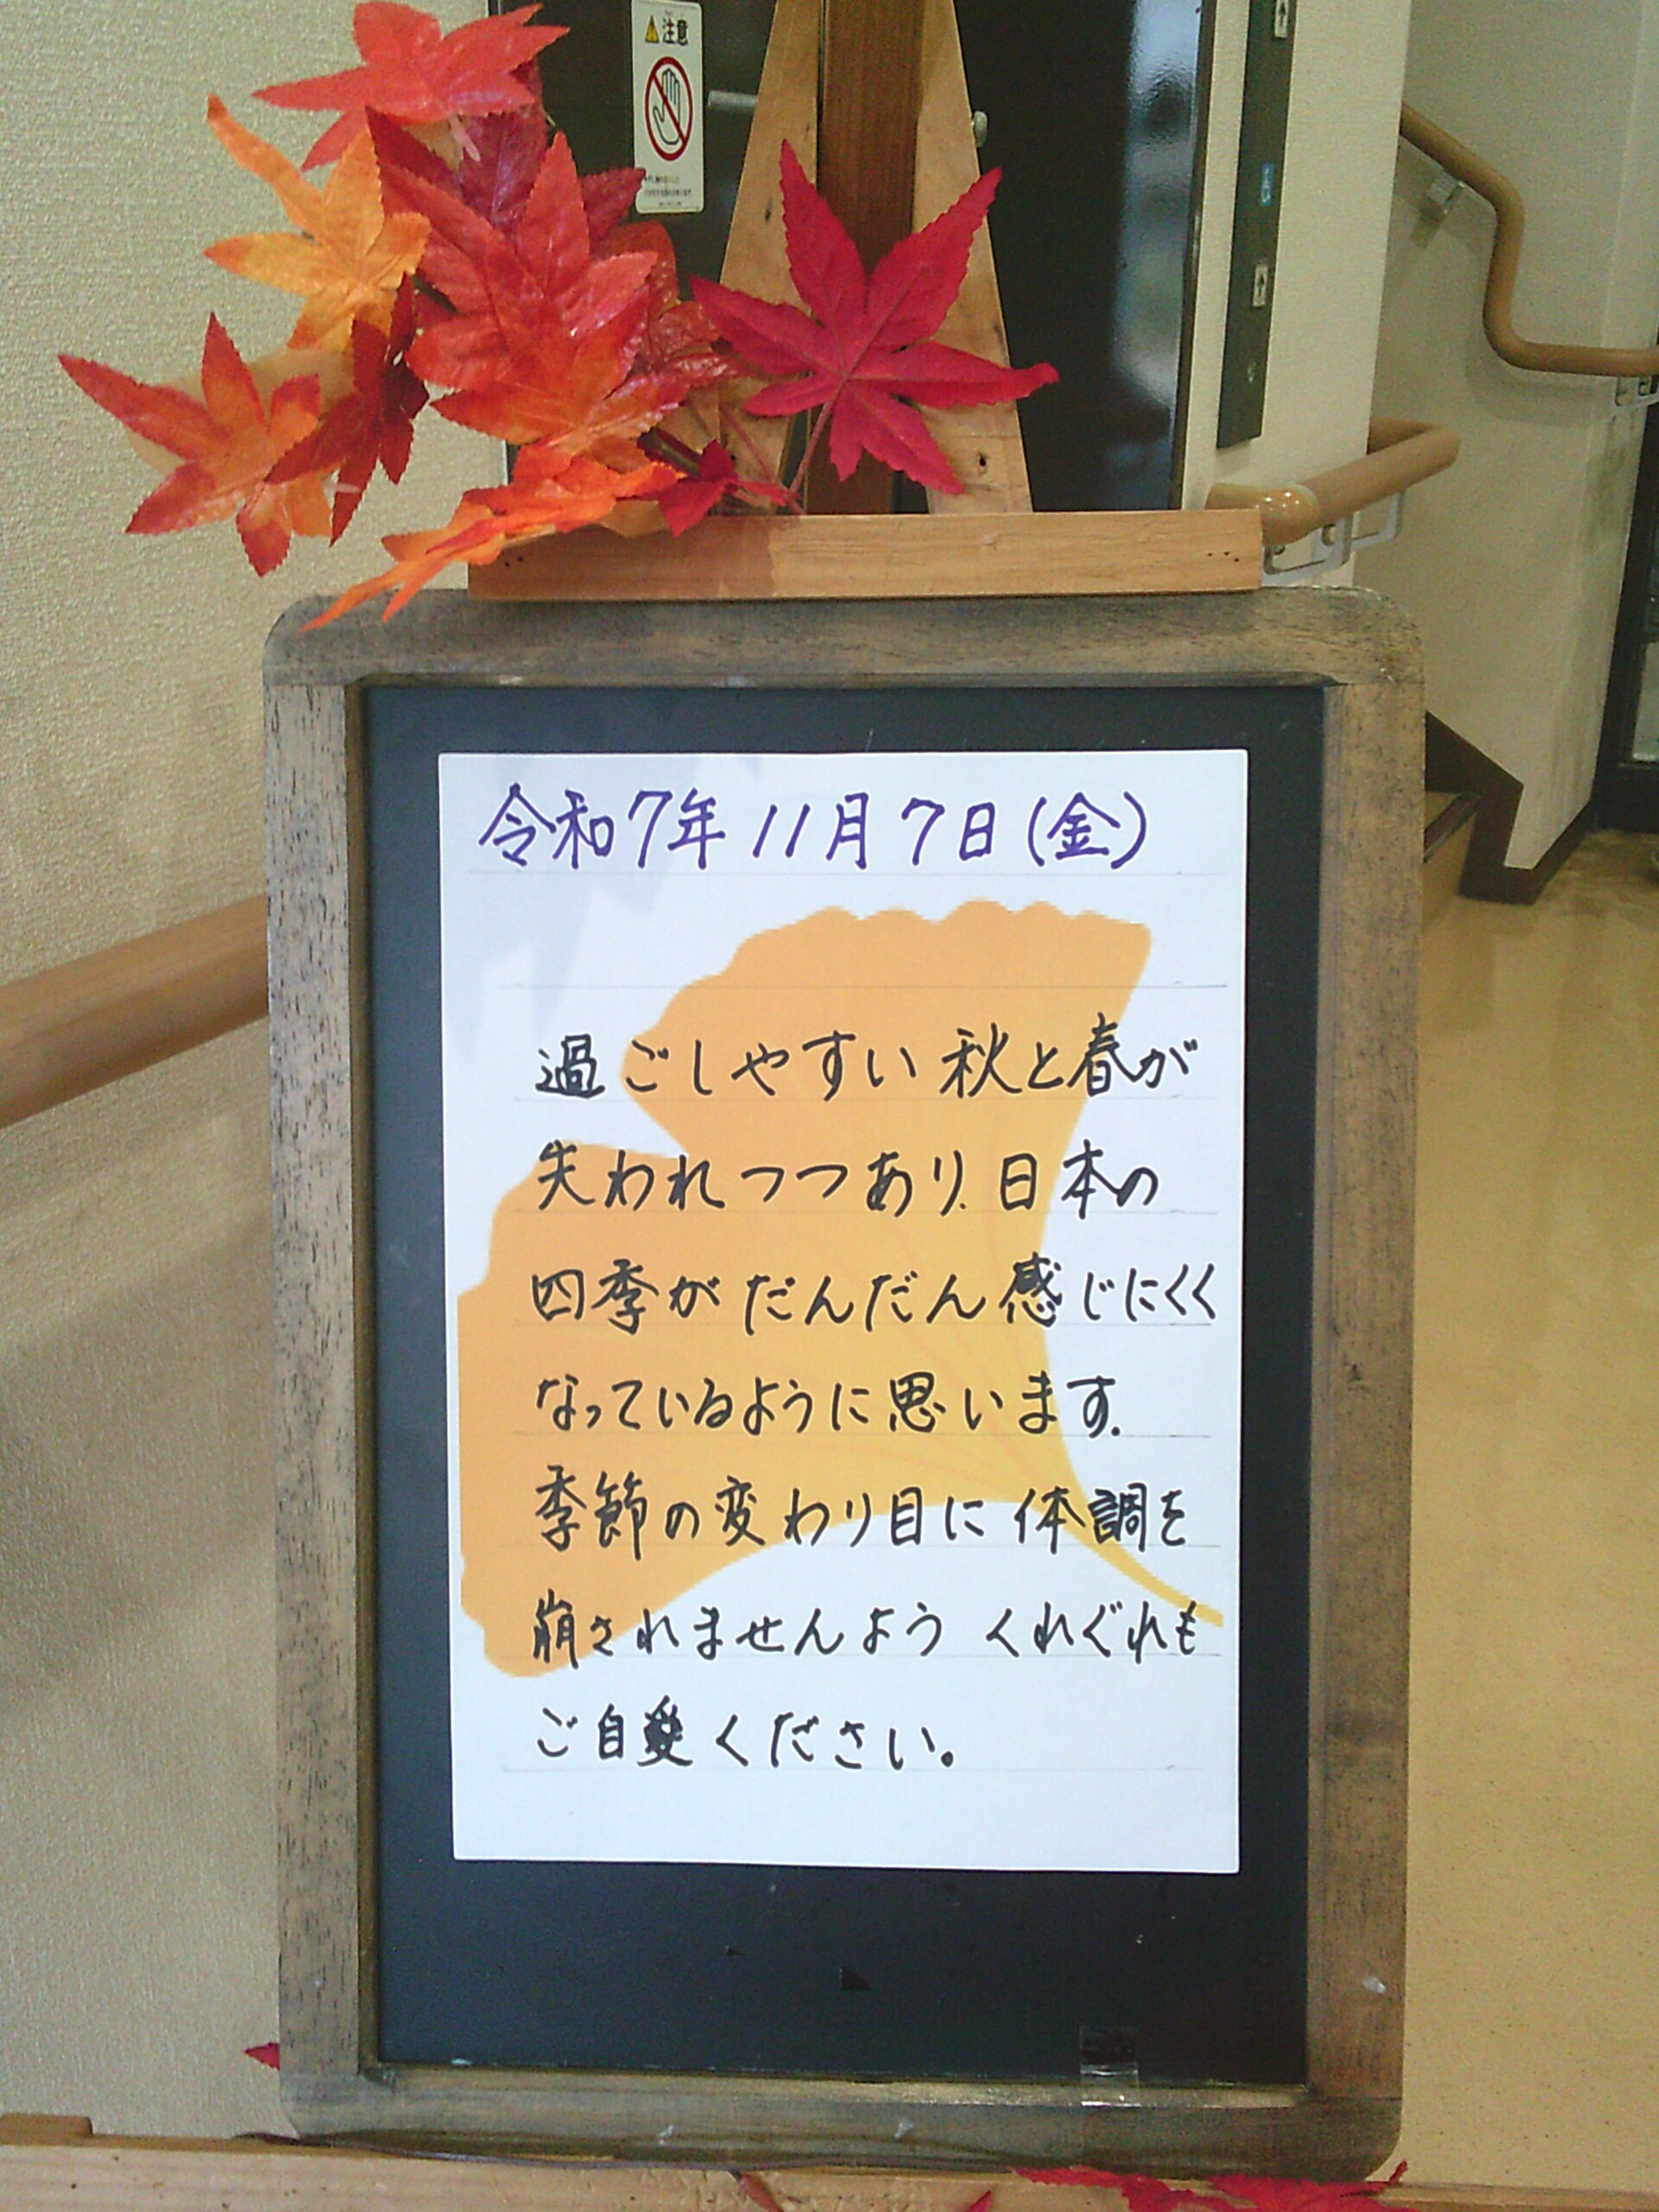 注意
令和7年11月7日(金)
過ごしやすい秋と春が
失われつつあり、日本の
四季がだんだん感じにくく
なっているように思います。
季節の変わり目に体調を
崩されませんよう くれぐれも
ご自愛ください。